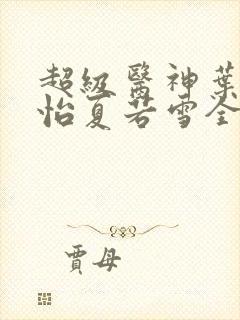 超級醫神葉
怡夏若雪全
賈母